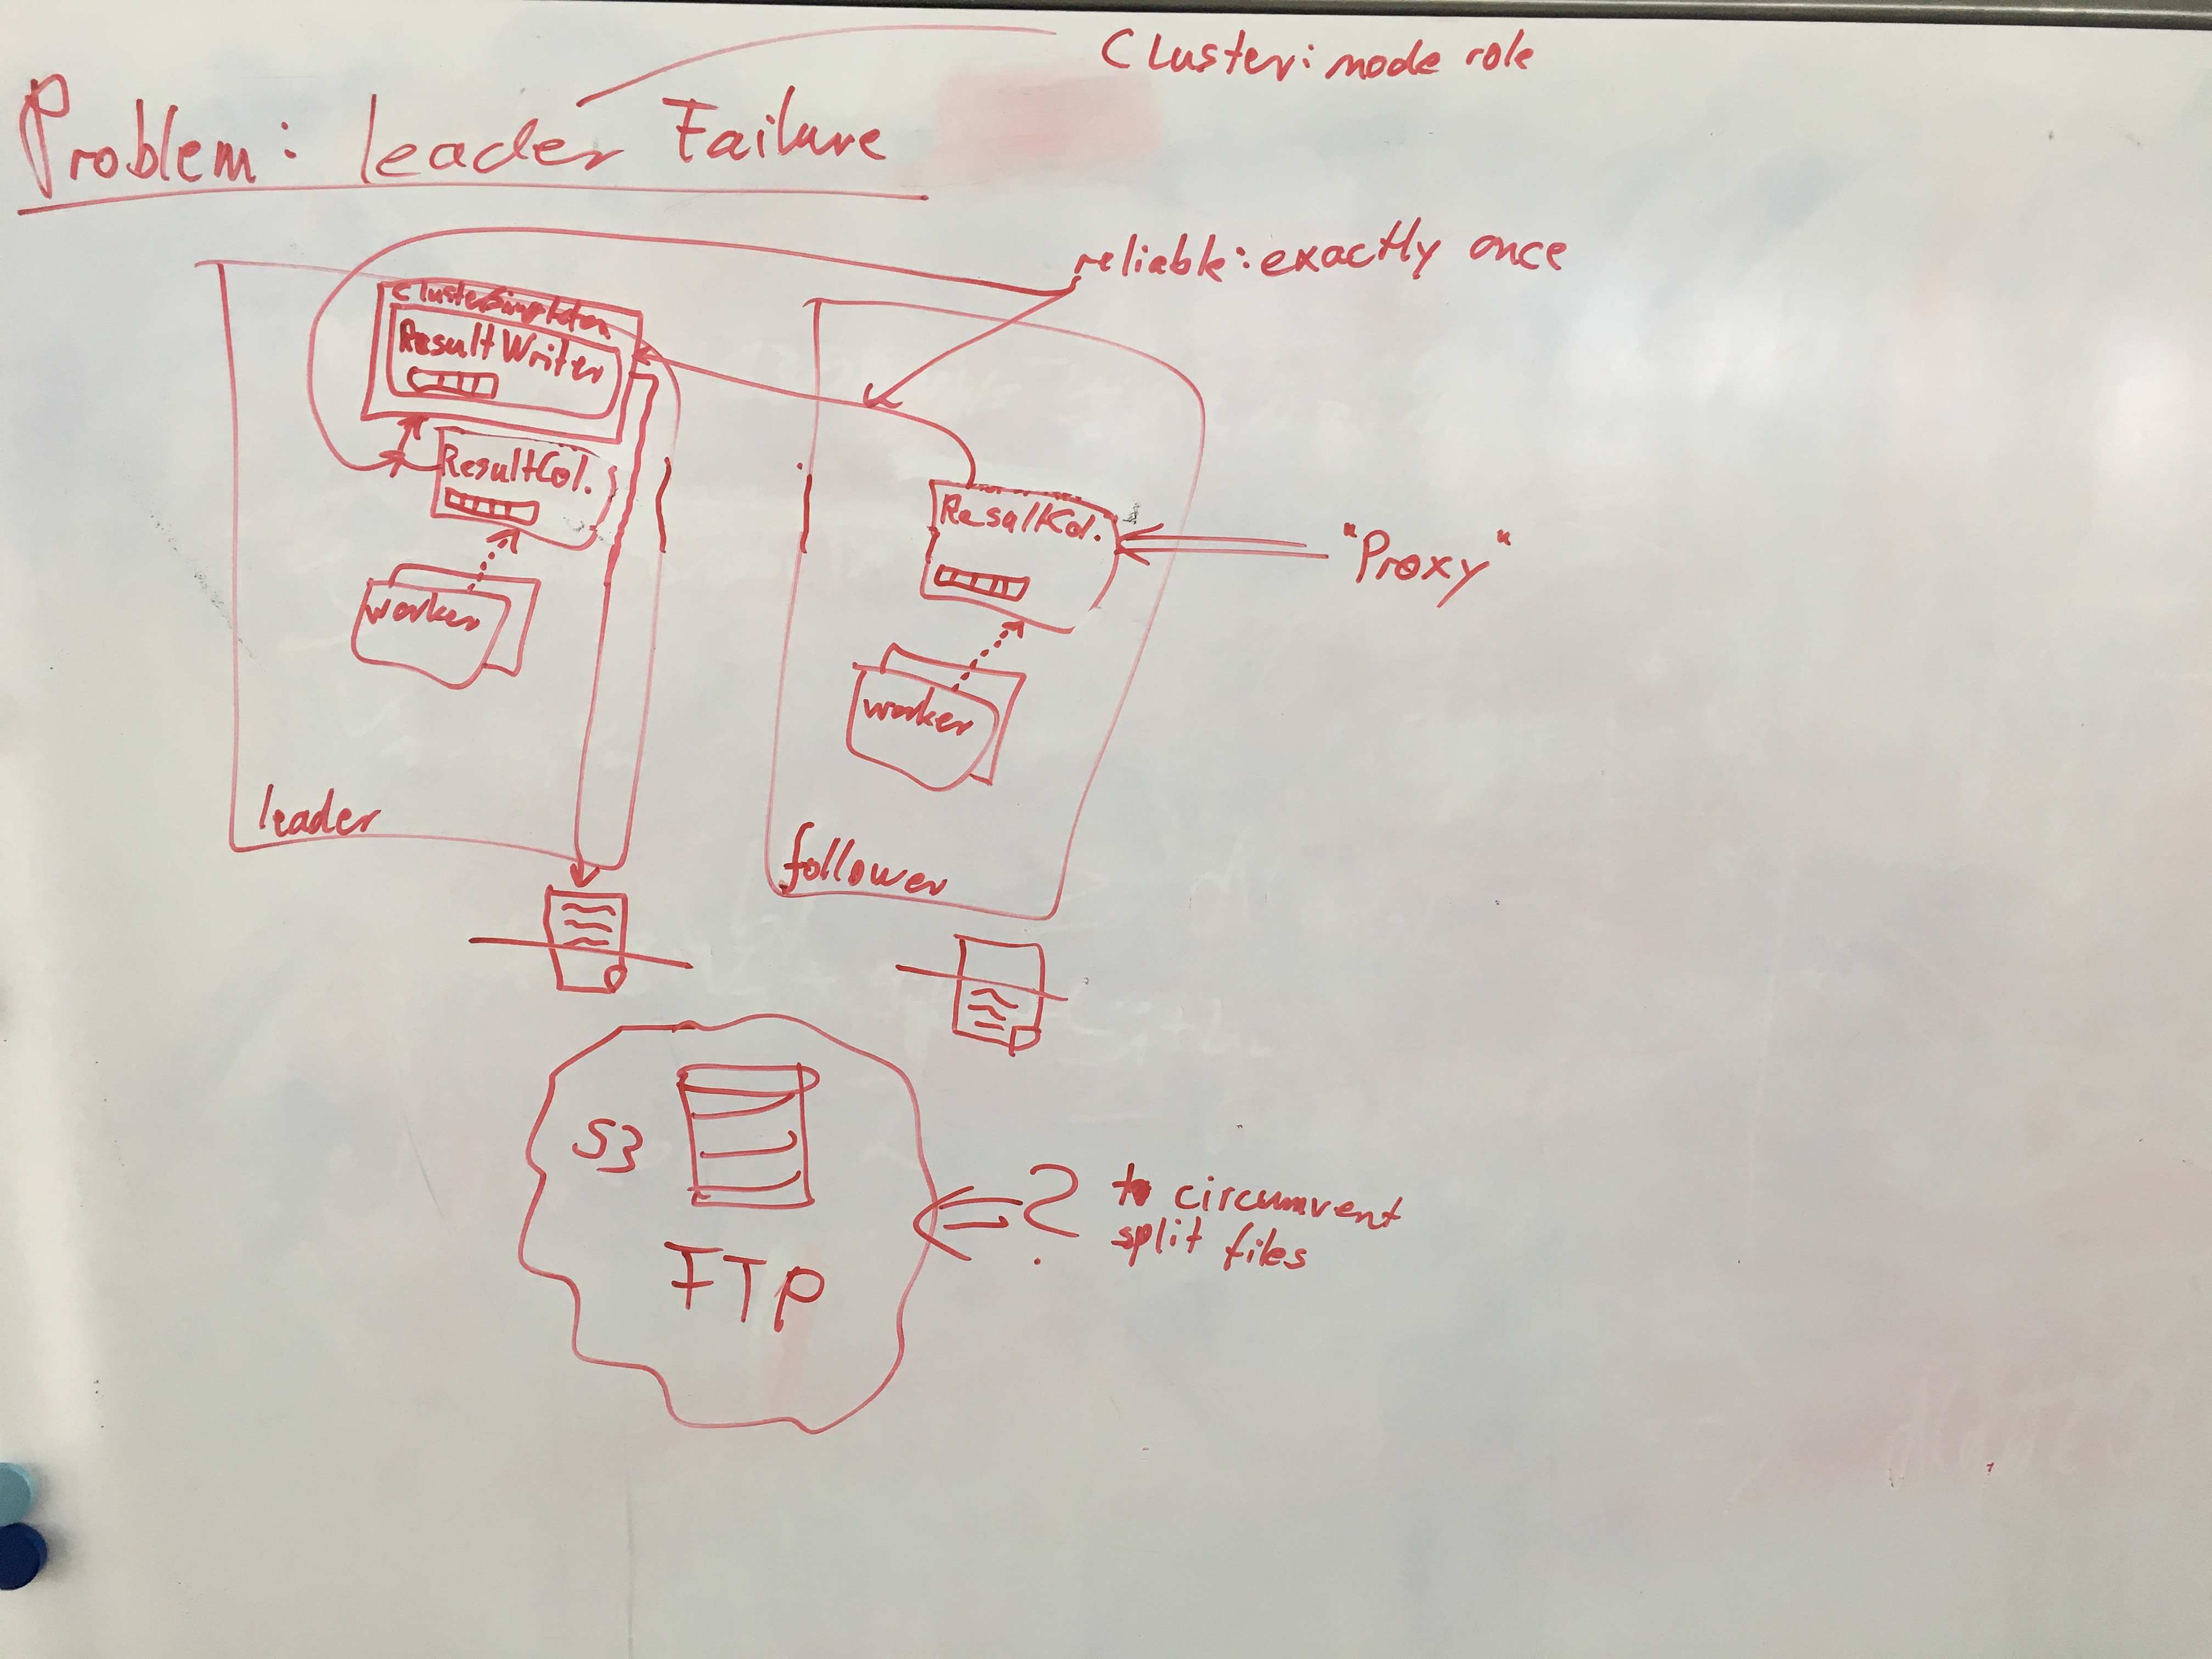 Cluster: node role
Problem: leader Failure
reliable: exactly once
ClusterSingleton
ResultWriter
ResultCol.
ResultCol.
"Proxy"
worker
worker
leader
follower
S3
? to circumvent
split files
FTP